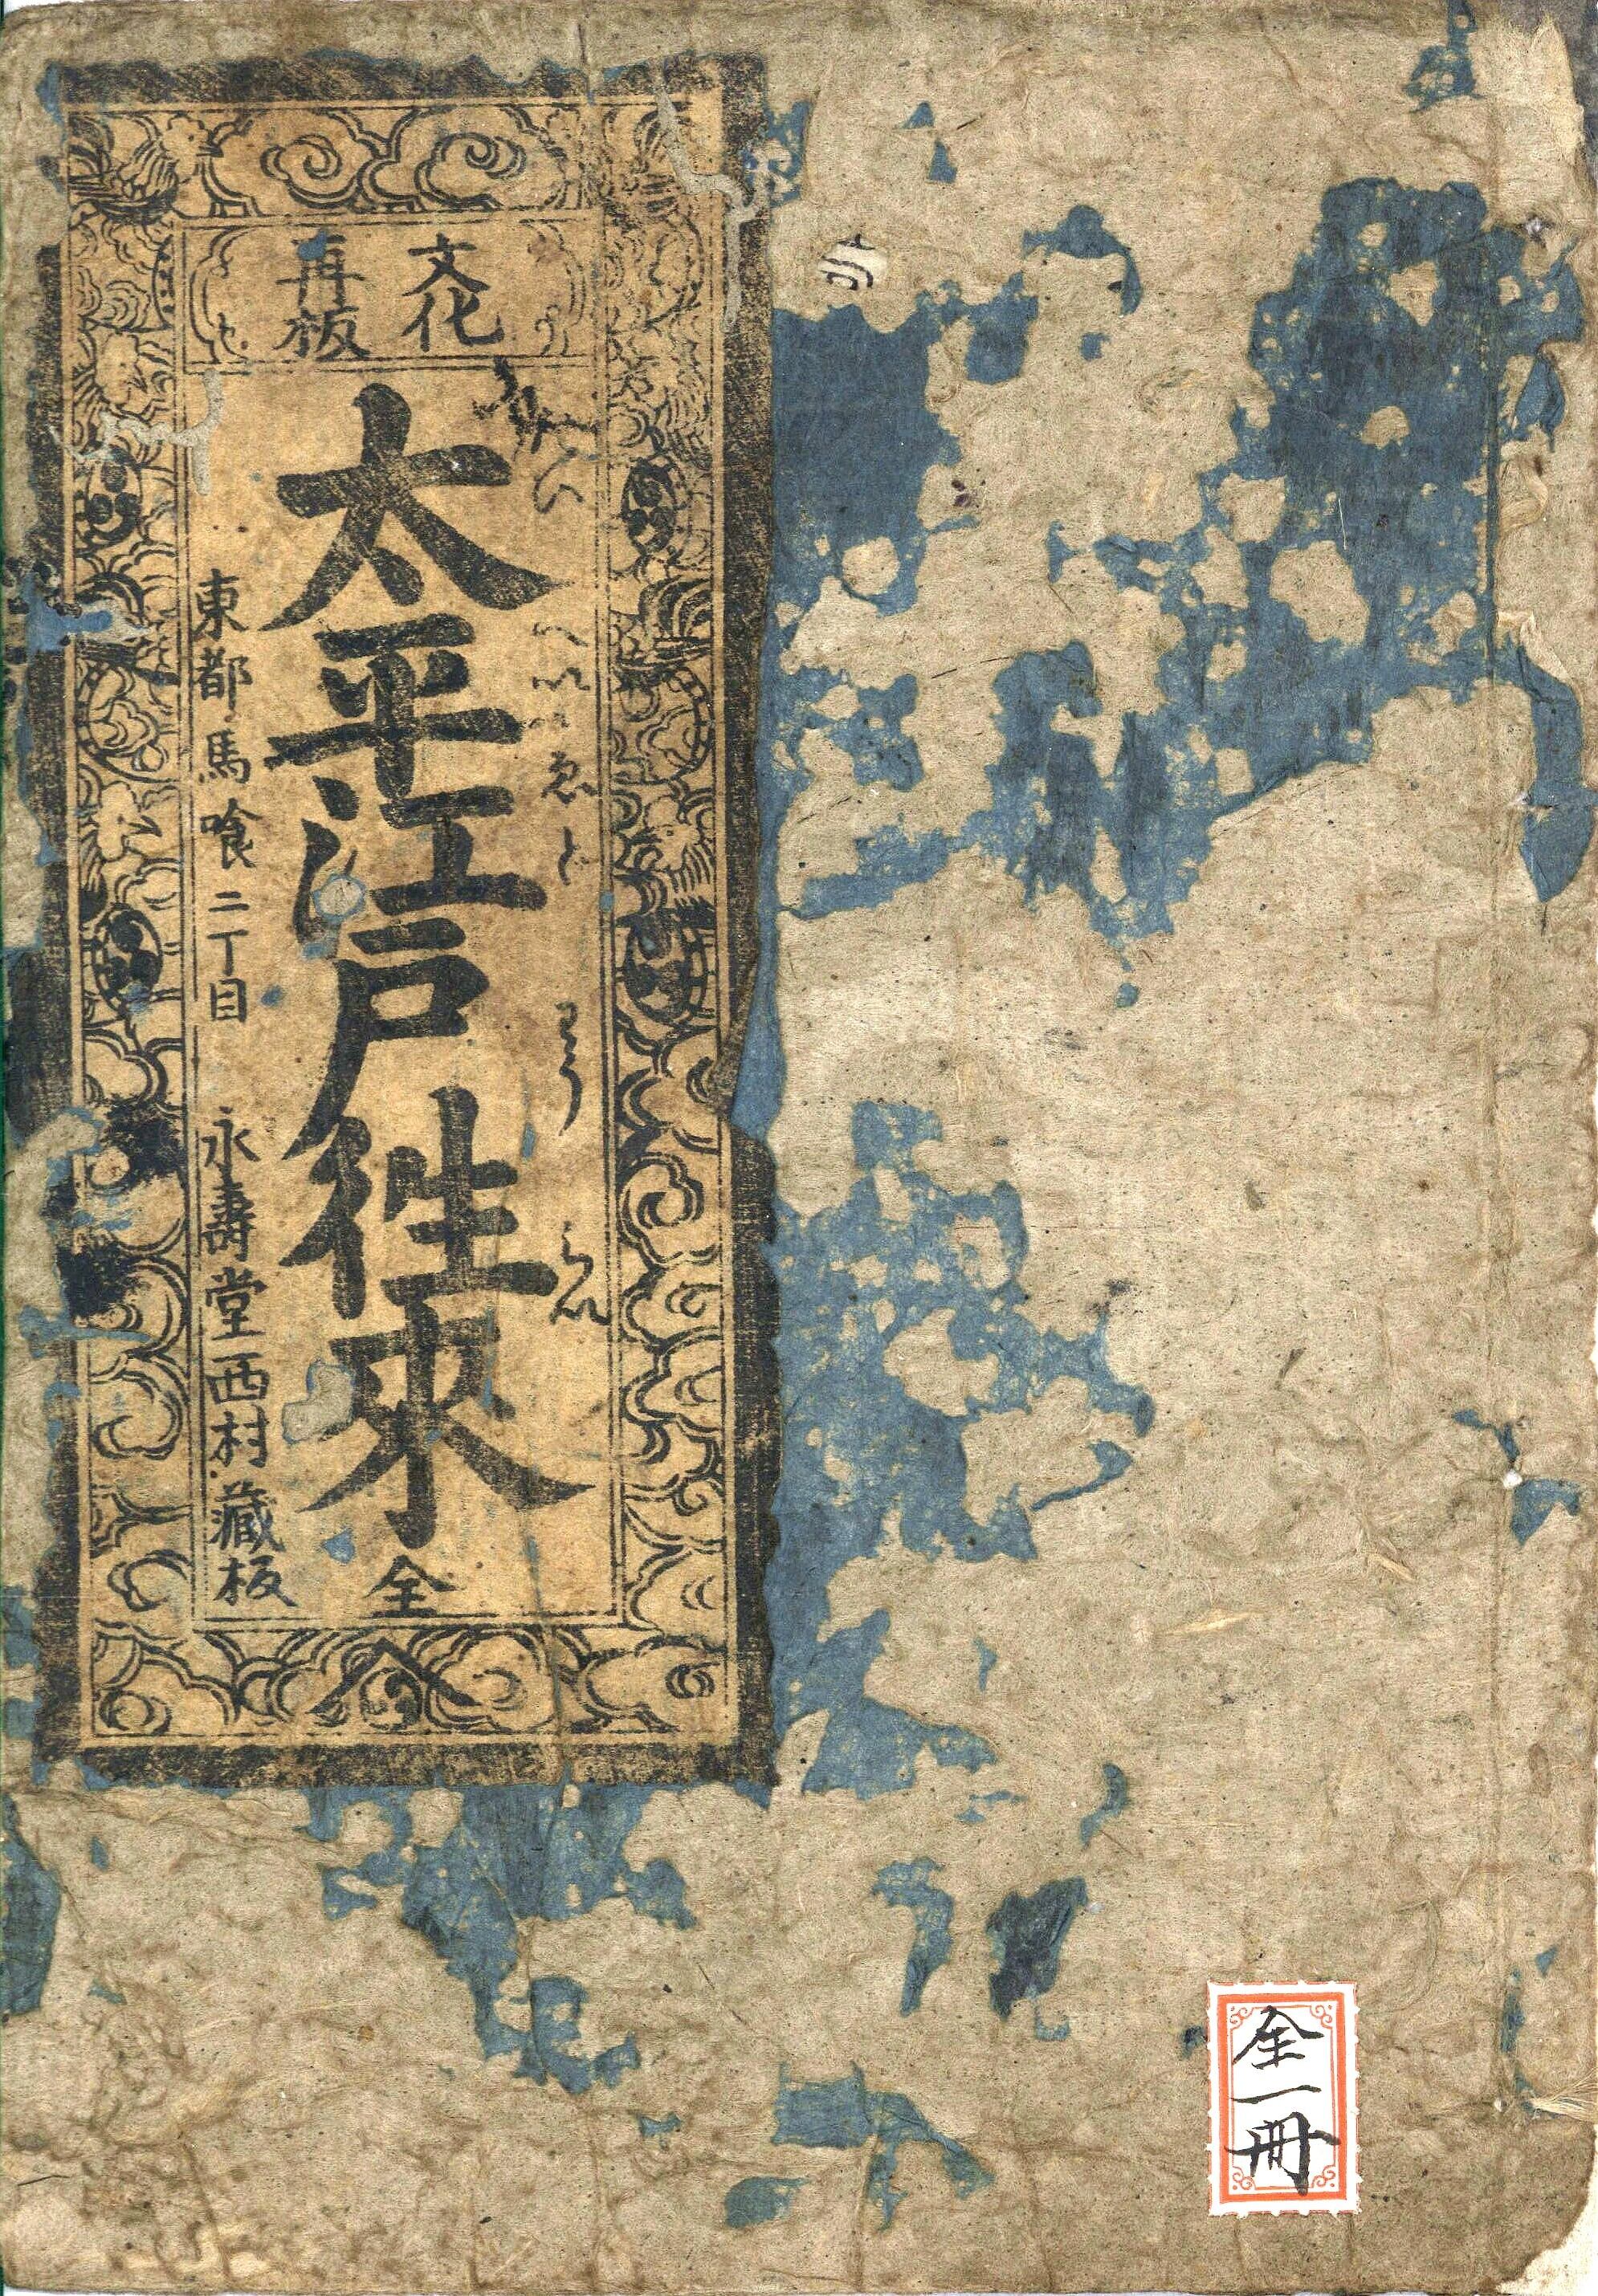 文化
再板
たいへいゑどわうらい
太平江戸徃來 全
東都馬喰二丁目 永壽堂西村藏板
全一冊